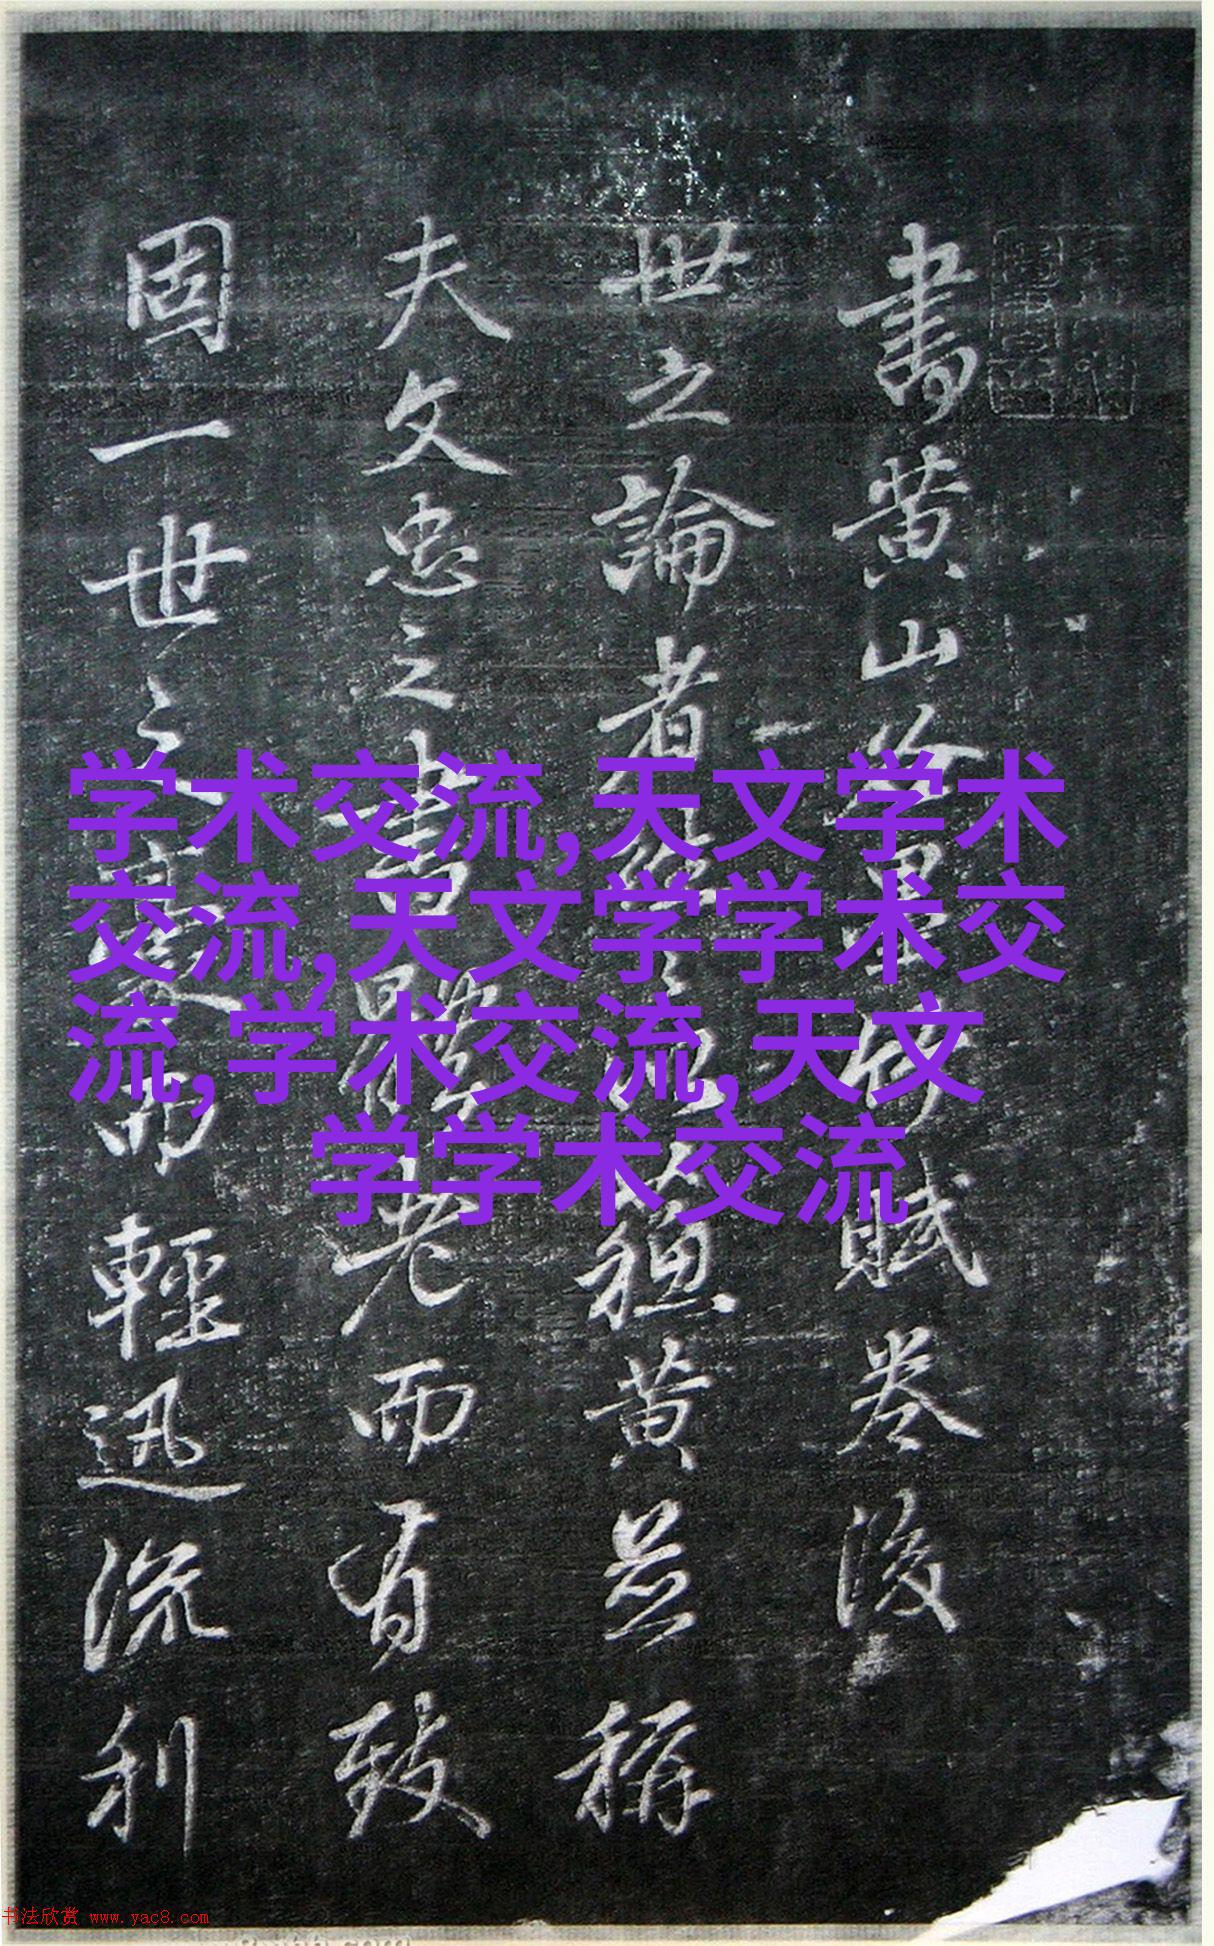 書黄山谷賦卷後
世之論者蘓黄並稱
夫文忠之書體老而有致
固一世之而輕迅流利
学术交流,天文学术
交流,天文学学术交
流,学术交流,天文
学学术交流
书法欣赏 www.yac8.com